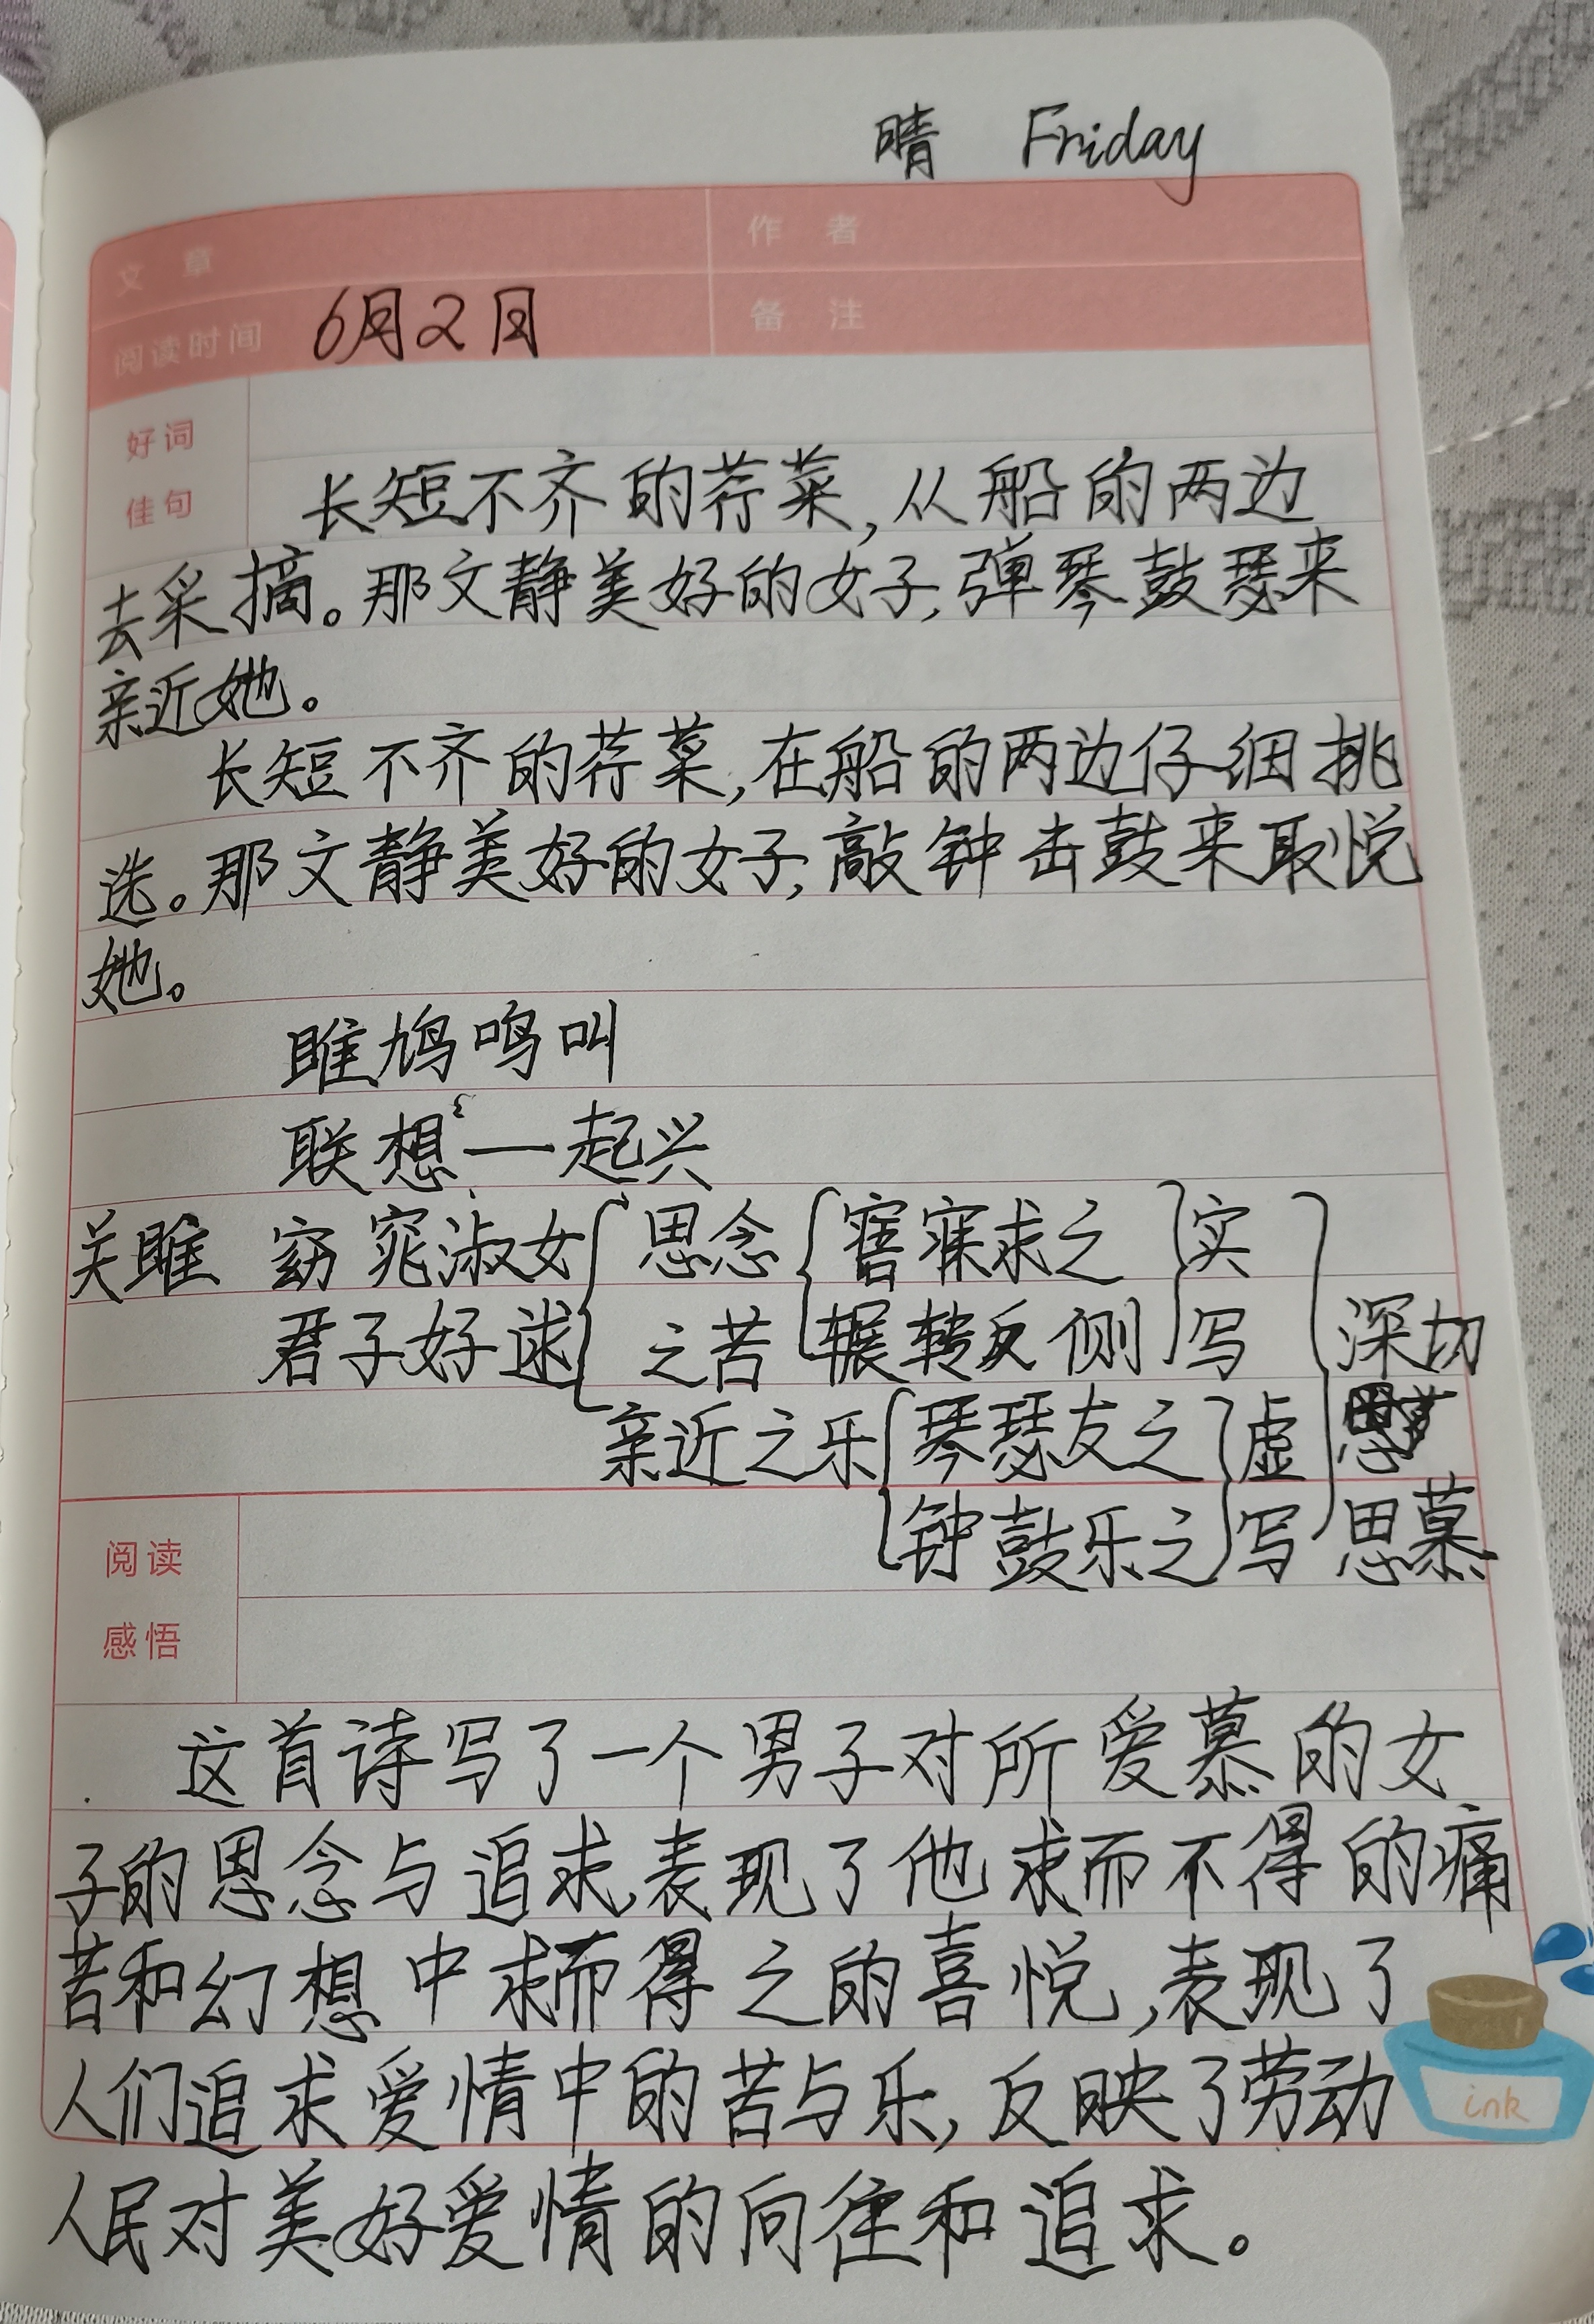 晴 Friday
文 章 作 者
阅读时间 6月2日 备 注
好词
佳句
长短不齐的荇菜,从船的两边
去采摘。那文静美好的女子,弹琴鼓瑟来
亲近她。
长短不齐的荇菜,在船的两边仔细挑
选。那文静美好的女子,敲钟击鼓来取悦
她。
雎鸠鸣叫
联想—起兴
关雎 窈窕淑女 思念 寤寐求之 实
君子好逑 之苦 辗转反侧 写 深切
亲近之乐 琴瑟友之 虚
钟鼓乐之 写 思慕
阅读
感悟
这首诗写了一个男子对所爱慕的女
子的思念与追求,表现了他求而不得的痛
苦和幻想中求而得之的喜悦,表现了
人们追求爱情中的苦与乐,反映了劳动
人民对美好爱情的向往和追求。
ink